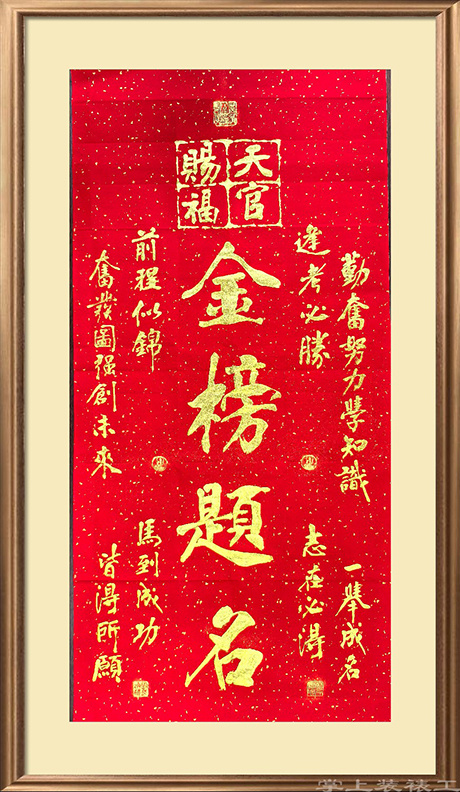 天官
賜福
金榜題名
勤奮努力學知識
一舉成名
逢考必勝
志在必得
前程似錦
馬到成功
奮發圖强創未來
皆得所願
掌上装裱工